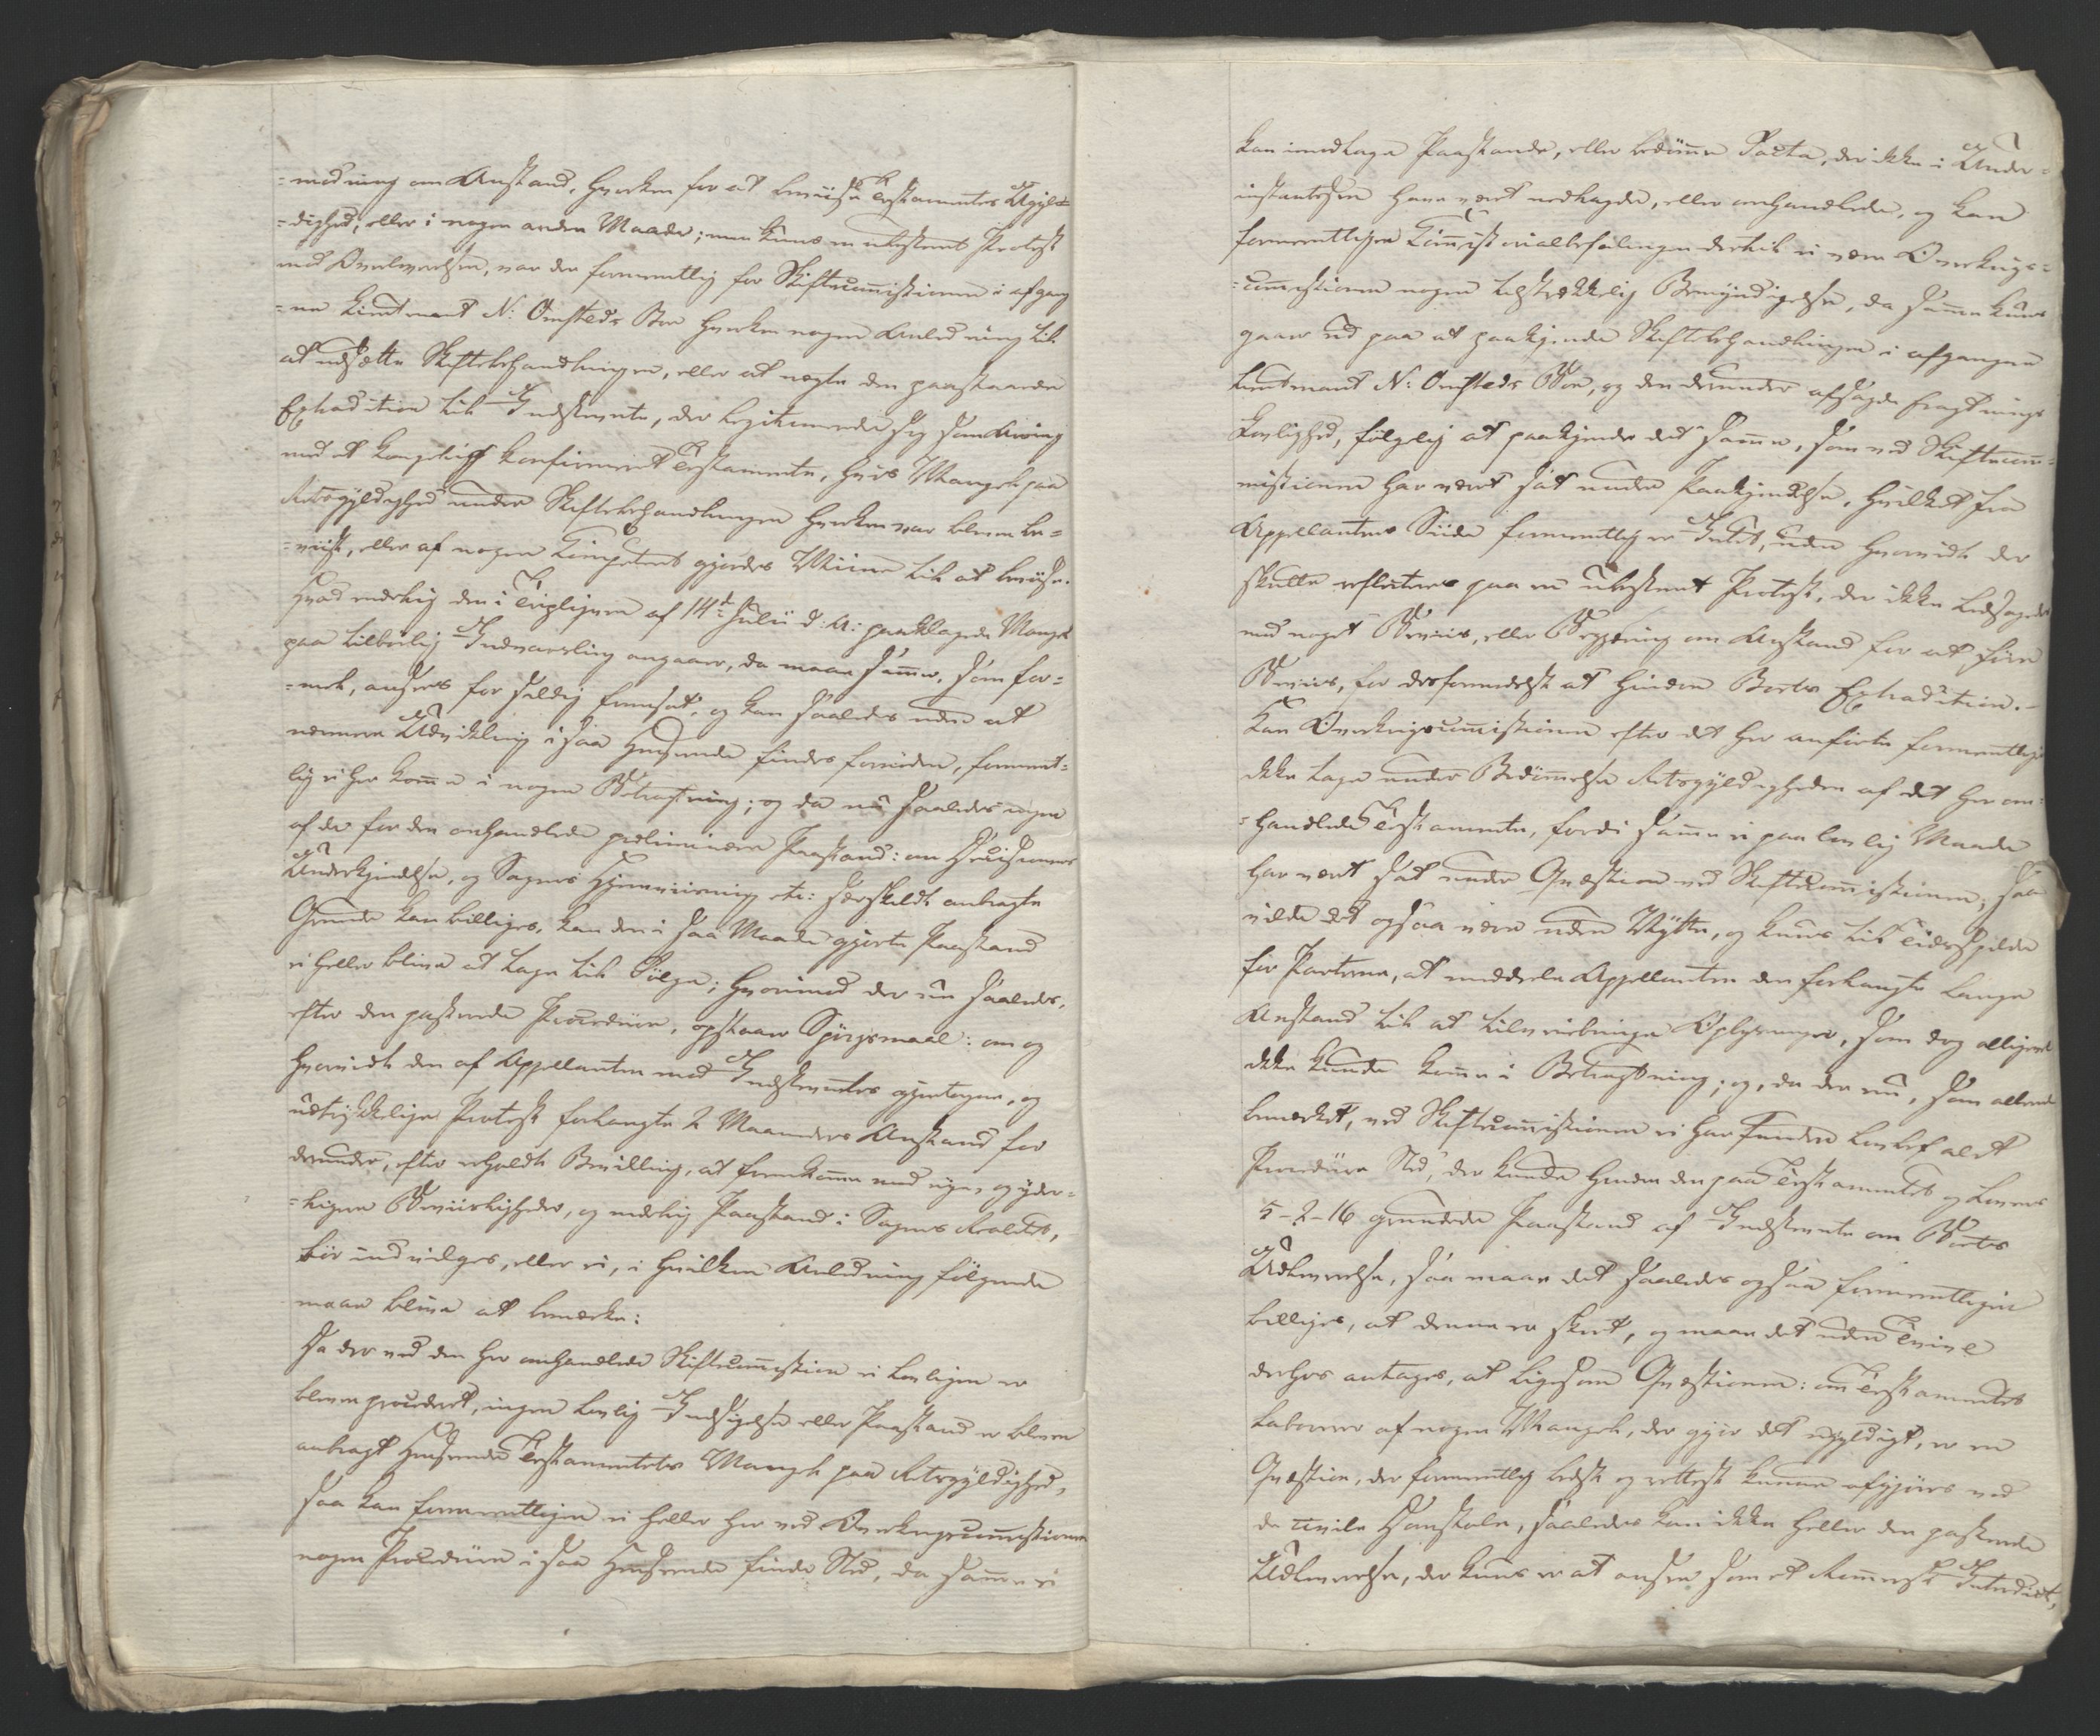 =modning om Anstand, hverken for at beviise Testamentes Ugyl=
=dighed, eller i nogen anden Maade; men kuns en ubestemt Protest
mod Overleverelsen, var der formentlig for Skiftecommissionen i afgang=
=ne Lieutnant N: Omsteds Boe hverken nogen Anledning til
at udsætte Skiftebehandlingen, eller at negte den paastaaede
Extradition til Indstevnte, der legitimerede sig som Arving
med et kongeligt konfirmeret Testamente, hvis Mangel paa
Retsgyldighed under Skiftebehandlingen hverken var bleven be=
=viist, eller af nogen Competent gjordes Miine til at beviise.
Hvad endelig den i Repliqven af 14de Julii d: A: paaklagede Mangel
paa tilbørlig Indvarsling angaaer, da maae samme, som for=
=meel, ansees for sildig fremsat, og kan saaledes uden at
nærmere Udvikling i saa Henseende findes fornøden, forment=
lig ei her komme i nogen Betragtning; og da nu saaledes ingen
af de for den omhandlede præliminaire Paastand: om Decisionens
Underkjendelse, og Sagens Hjemviisning etc: særskildt anbragte
Grunde kan billiges, kan den i saa Maade gjorte Paastand
ei heller blive at tage til Følge; hvorimod der nu saaledes,
efter den passerede Procedure, opstaaer Spørgsmaal: om og
hvorvidt den af Appellanten mod Indstevntes gjentagne, og
udtrykkelige Protest forlangte 2 Maaneders Anstand for
derunder, efter erholdt Bevilling, at fremkomme med nye, og yder=
=ligere Beviisligheder, og endelig Paastand i Sagens Realitet,
bør indvilges, eller ei, i hvilken Anledning følgende
maae blive at bemærke:
Da der ved den her omhandlede Skiftecommission ei lovligen er
bleven procederet, ingen lovlig Indsigelse eller Paastand er bleven
anbragt Henseende Testamentets Mangel paa Retsgyldighed,
saa kan formentligen ei heller her ved Overkrigscommissionen
nogen Procedure i saa Henseende finde Sted, da samme ei
kan imodtage Paastande, eller bedømme Facta, der ikke i Under=
instantsen have været nedlagde, eller omhandlede, og kan
formentligen Commissorialbefalingen dertil ei være Overkrigs=
=commissionen nogen tilstrækkelig Bemyndigelse, da samme kuns
gaaer ud paa at paakjende Skiftebehandlingen i afgangne
Lieutnant N: Omsteds Boe, og den derunder afsagde Eragtnings
Lovlighed, følgelig at paakjende det samme, som ved Skiftecom=
missionen har været sat under Paakjendelse, hvilket fra
Appellantens Siide formentlig er Intet, uden hvorvidt der
skulle reflecteres paa en ubestemt Protest, der ikke ledsagedes
med noget Beviis, eller Begjæring om Anstand for at føre
Beviis, for desformedelst at hindre Boets Extradition.-
Kan Overkrigscommissionen efter det her anførte formentlig
ikke tage under Bedømmelse Retsgyldigheden af det her om=
=handlede Testamente, fordi samme ei paa lovlig Maade
har været sat under Qvæstion ved Skiftecommissionen; saa
vilde det ogsaa være uden Nytte, og kuns til Tidsspilde
for Parterne, at meddele Appellanten den forlangte lange
Anstand til at tilveiebringe Oplysninger, som dog alligevel
ikke kunde komme i Betragtning; og, da der nu, som allerede
bemærket, ved Skiftecommissionen ei har funden lovbefalet
Procedure Sted, der kunde hindre den paa Testamentet og Lovens
5-2-16 grundede Paastand af Indstevnte om Boets
Udleverelse, saa maae det saaledes ogsaa formentligen
billiges, at denne er skeet, og maae det uden Tvivl
derhos antages, at ligesom Qvæstionen: om Testamentet
laborerer af nogen Mangel, der gjør det ugyldigt, er en
Qvæstion, der formentlig bedst og rettest kunne afgjøres ved
de civile Domstole, saaledes kan ikke heller den passerede
Udleverelse, der kuns er at ansee som et Romersk Interdict,